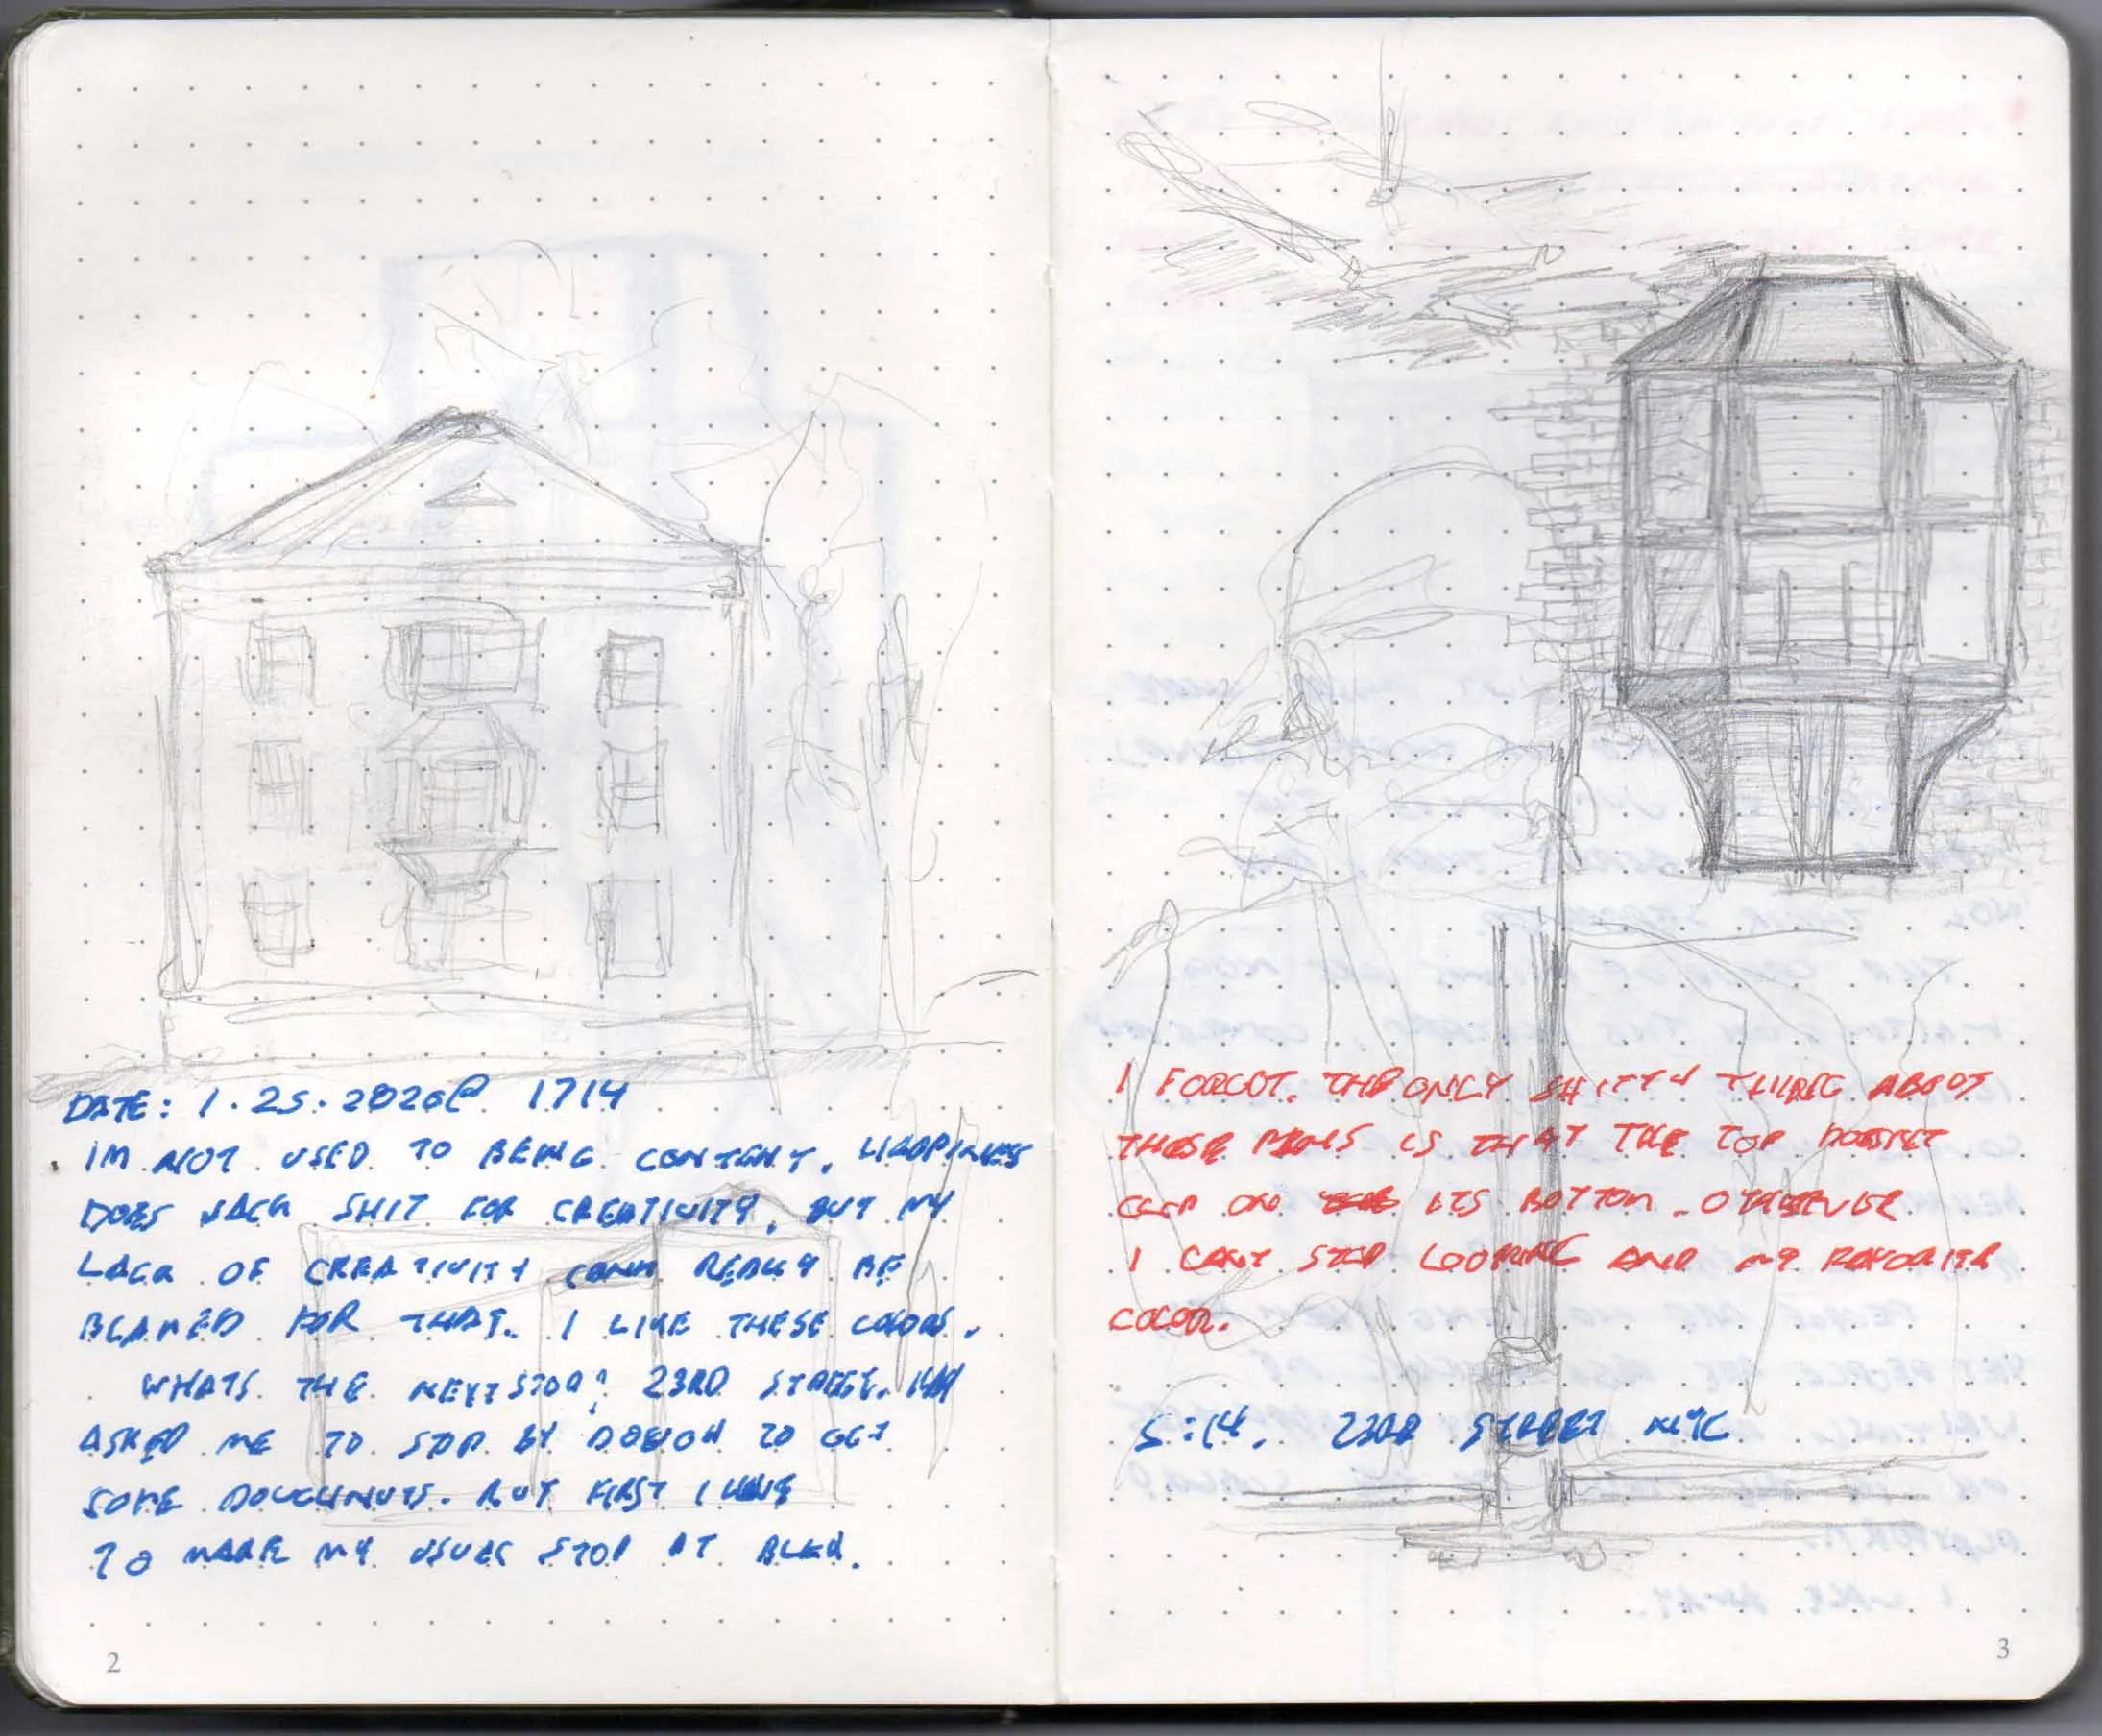 DATE: 1.25.2020@ 1714
IM NOT USED TO BEING CONTENT. HAPPINESS
DOES JACK SHIT FOR CREATIVITY, BUT MY
LACK OF CREATIVITY CANT REALLY BE
BLAMED FOR THAT. I LIKE THESE COLORS.
WHATS THE NEXT STOP? 23RD STREET.
ASKED ME TO STOP BY DOUGH TO GET
SOME DOUGHNUTS. BUT FIRST I HAVE
TO MAKE MY USUAL STOP AT BLICK.
2
I FORGOT. THE ONLY SHITTY THING ABOUT
THESE PENS IS THAT THE TOP DOESNT
CAP ON ITS BOTTOM. OTHERWISE
I CANT STOP LOOKING AND MY FAVORITE
COLOR.
5:14. 23RD STREET NYC
3